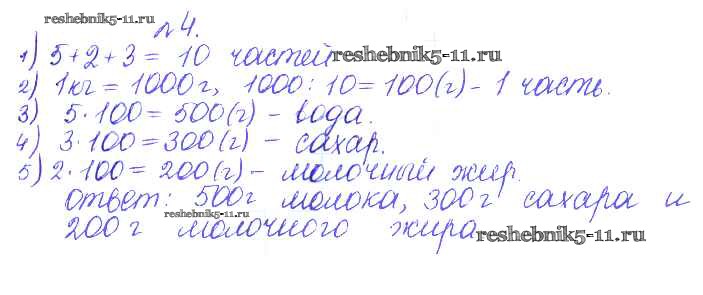 reshebnik5-11.ru
№4.
1) 5+2+3=10 частей reshebnik5-11.ru
2) 1кг=1000г, 1000:10=100(г)-1 часть.
3) 5·100=500(г)-вода.
4) 3·100=300(г)-сахар.
5) 2·100=200(г)-молочный жир.
ответ: 500г молока, 300г сахара и
reshebnik5-11.ru
200г молочного жира reshebnik5-11.ru